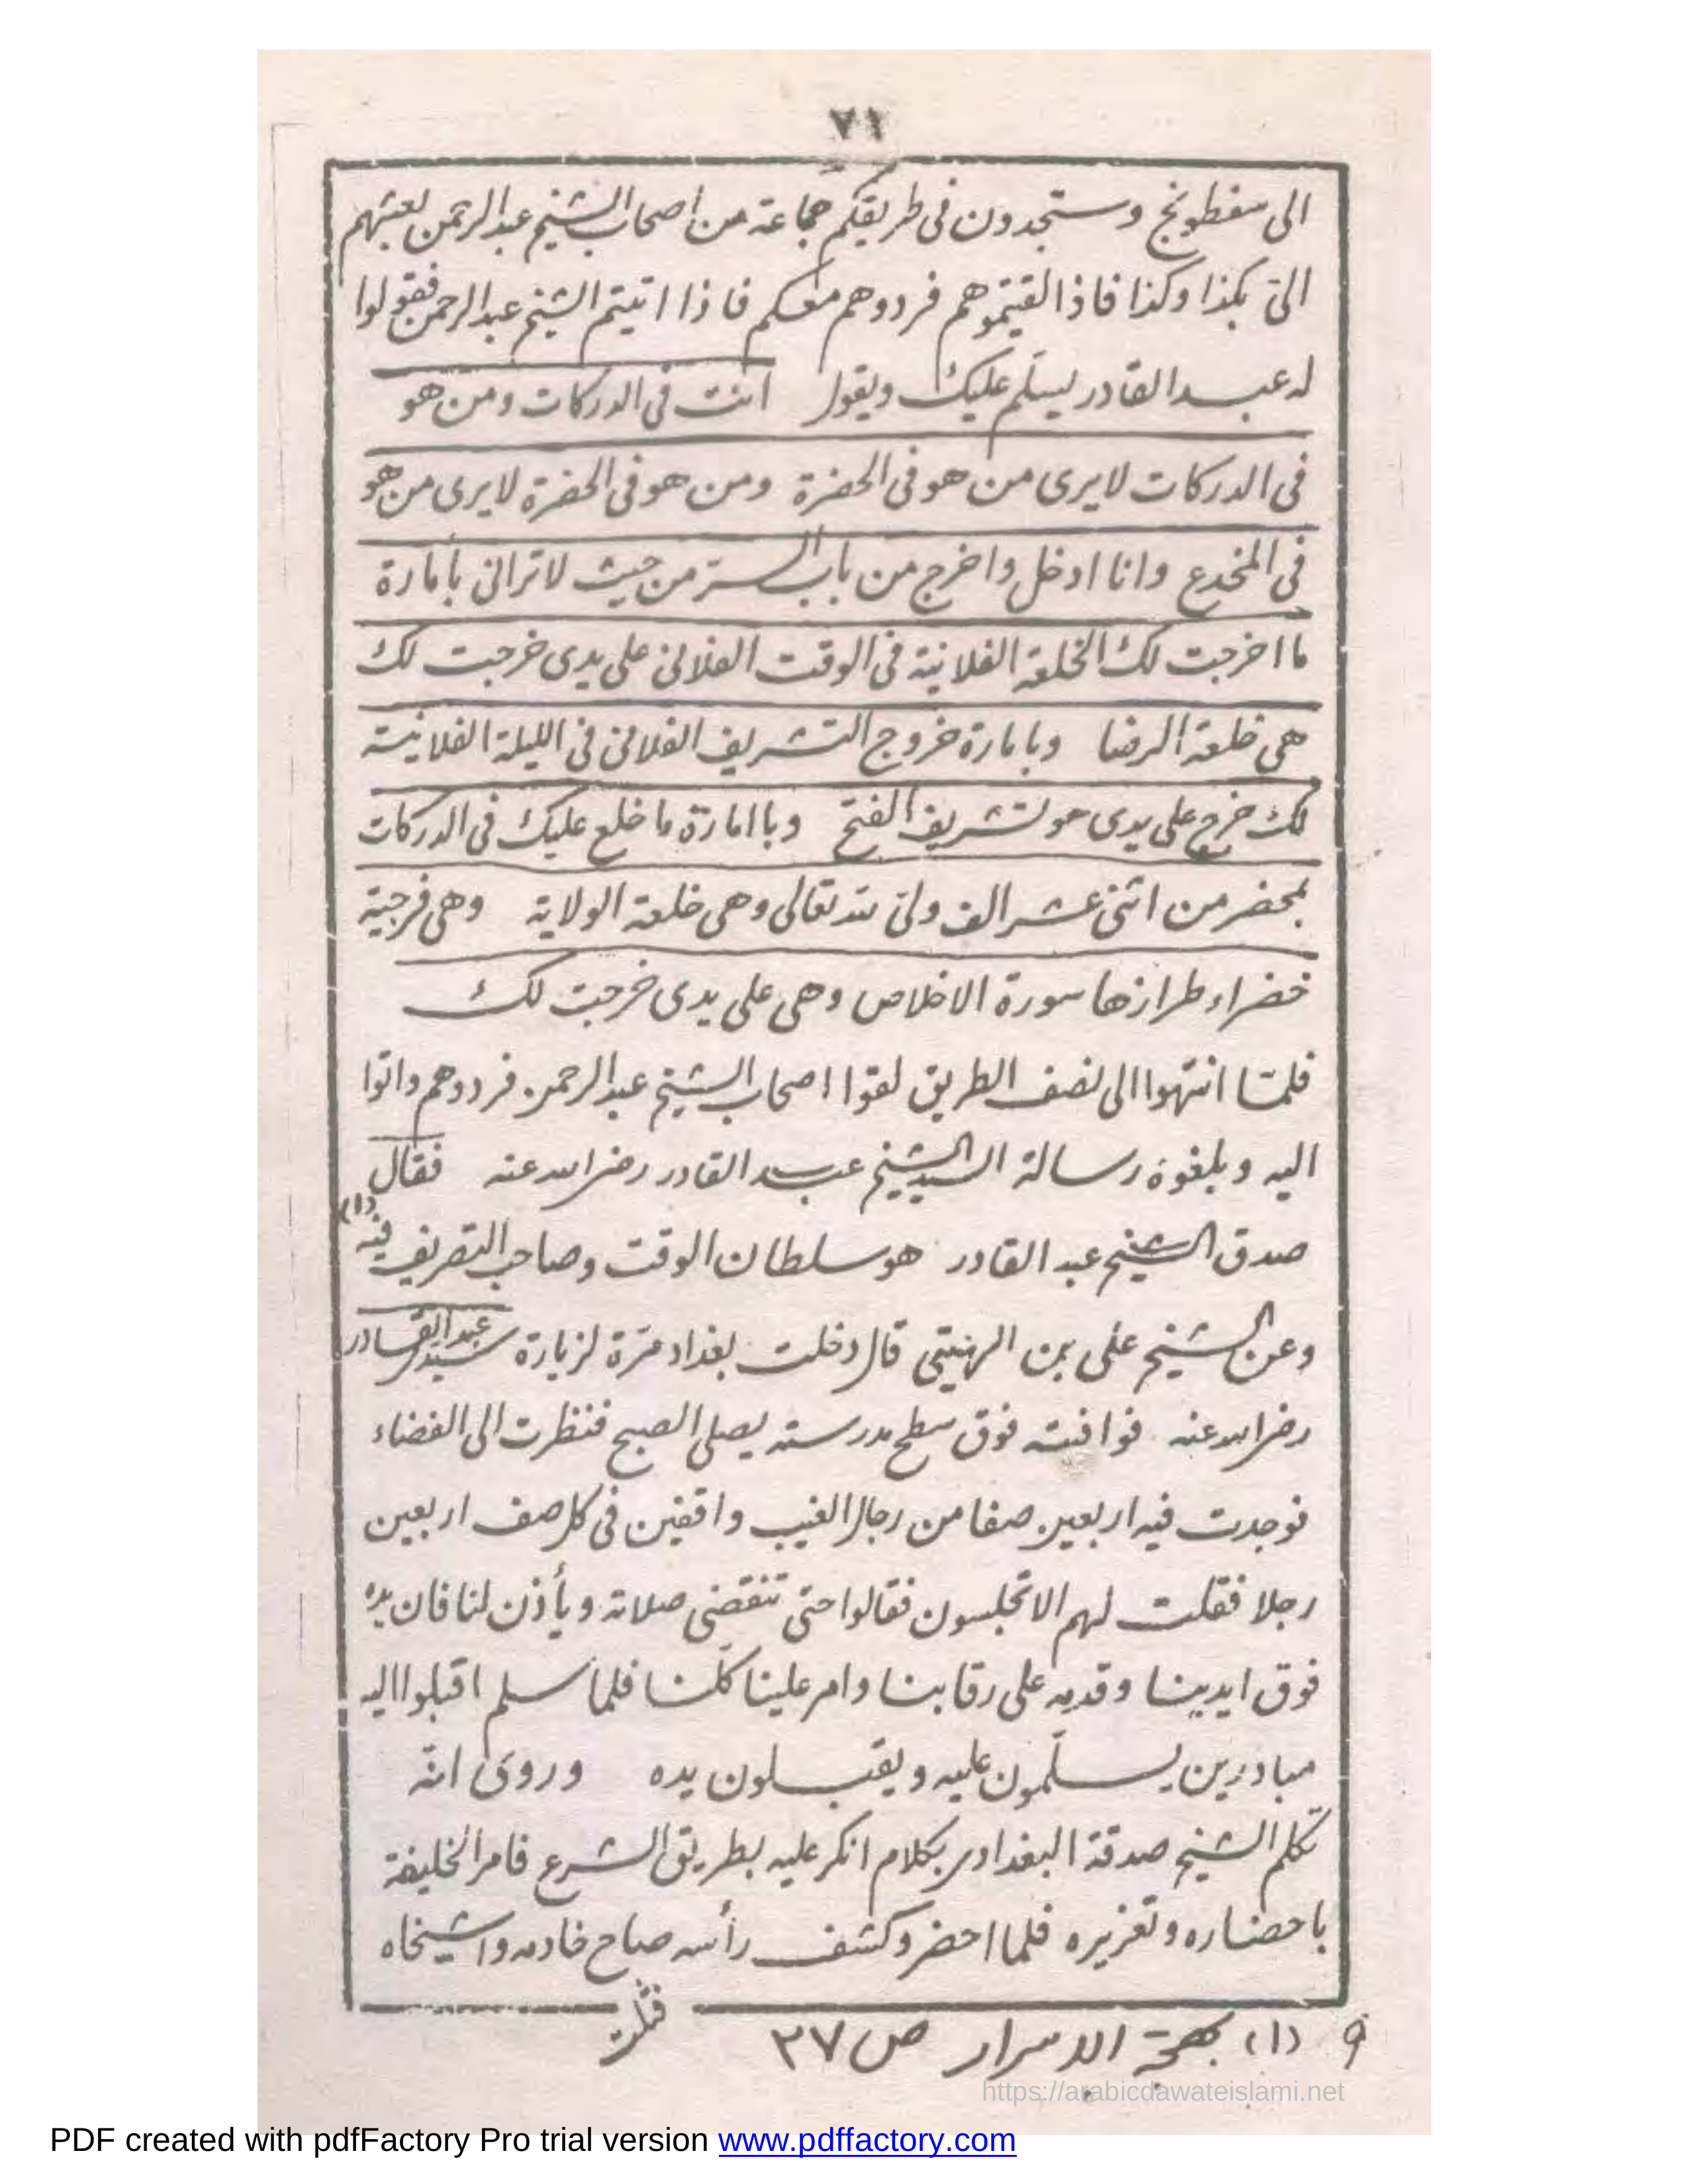 ٧١
الى سفطونج وستجدون فى طريقكم جماعة من اصحاب الشيخ عبد الرحمن بعثهم
الىّ بكذا وكذا فاذا لقيتموهم فردوهم معكم فاذا اتيتم الشيخ عبد الرحمن فقولوا
له عبد القادر يسلّم عليك ويقول انت فى الدركات ومن هو
فى الدركات لا يرى من هو فى الحضرة ومن هو فى الحضرة لا يرى من هو
فى المخدع وانا ادخل واخرج من باب السر من حيث لا ترانى بأمارة
ما اخرجت لك الخلعة الفلانية فى الوقت الفلانى على يدى خرجت لك
هى خلعة الرضا وبامارة خروج التشريف الفلانى فى الليلة الفلانية
لك خرج على يدى هو تشريف الفتح وباامارة ما خلع عليك فى الدركات
بمحضر من اثنى عشر الف ولىّ لله تعالى وهى خلعة الولاية وهى فرجية
خضراء طرازها سورة الاخلاص وهى على يدى خرجت لك
فلمّا انتهوا الى نصف الطريق لقوا اصحاب الشيخ عبد الرحمن فردوهم واتوا
اليه وبلغوه رسالة السيد الشيخ عبد القادر رضى الله عنه فقال
صدق الشيخ عبد القادر هو سلطان الوقت وصاحب التصريف فيه (١)
وعن الشيخ على بن الهيتى قال دخلت بغداد مرّة لزيارة سيد عبد القادر
رضى الله عنه فوافيته فوق سطح مدرسته يصلى الصبح فنظرت الى الفضاء
فوجدت فيه اربعين صفا من رجال الغيب واقفين فى كل صف اربعين
رجلا فقلت لهم الا تجلسون فقالوا حتى تنقضى صلاته ويأذن لنا فان يده
فوق ايدينا وقدمه على رقابنا وامر علينا كلّنا فلما سلم اقبلوا اليه
مبادرين يسلّمون عليه ويقبلون يده وروى انّه
تكلم الشيخ صدقة البغدادى بكلام انكر عليه بطريق الشرع فامر الخليفة
باحضاره وتعزيره فلما احضر وكشف رأسه صاح خادمه واشيخاه
فشلت
(١) بهجة الاسرار ص ٢٧
https://arabicdawateislami.net
PDF created with pdfFactory Pro trial version www.pdffactory.com